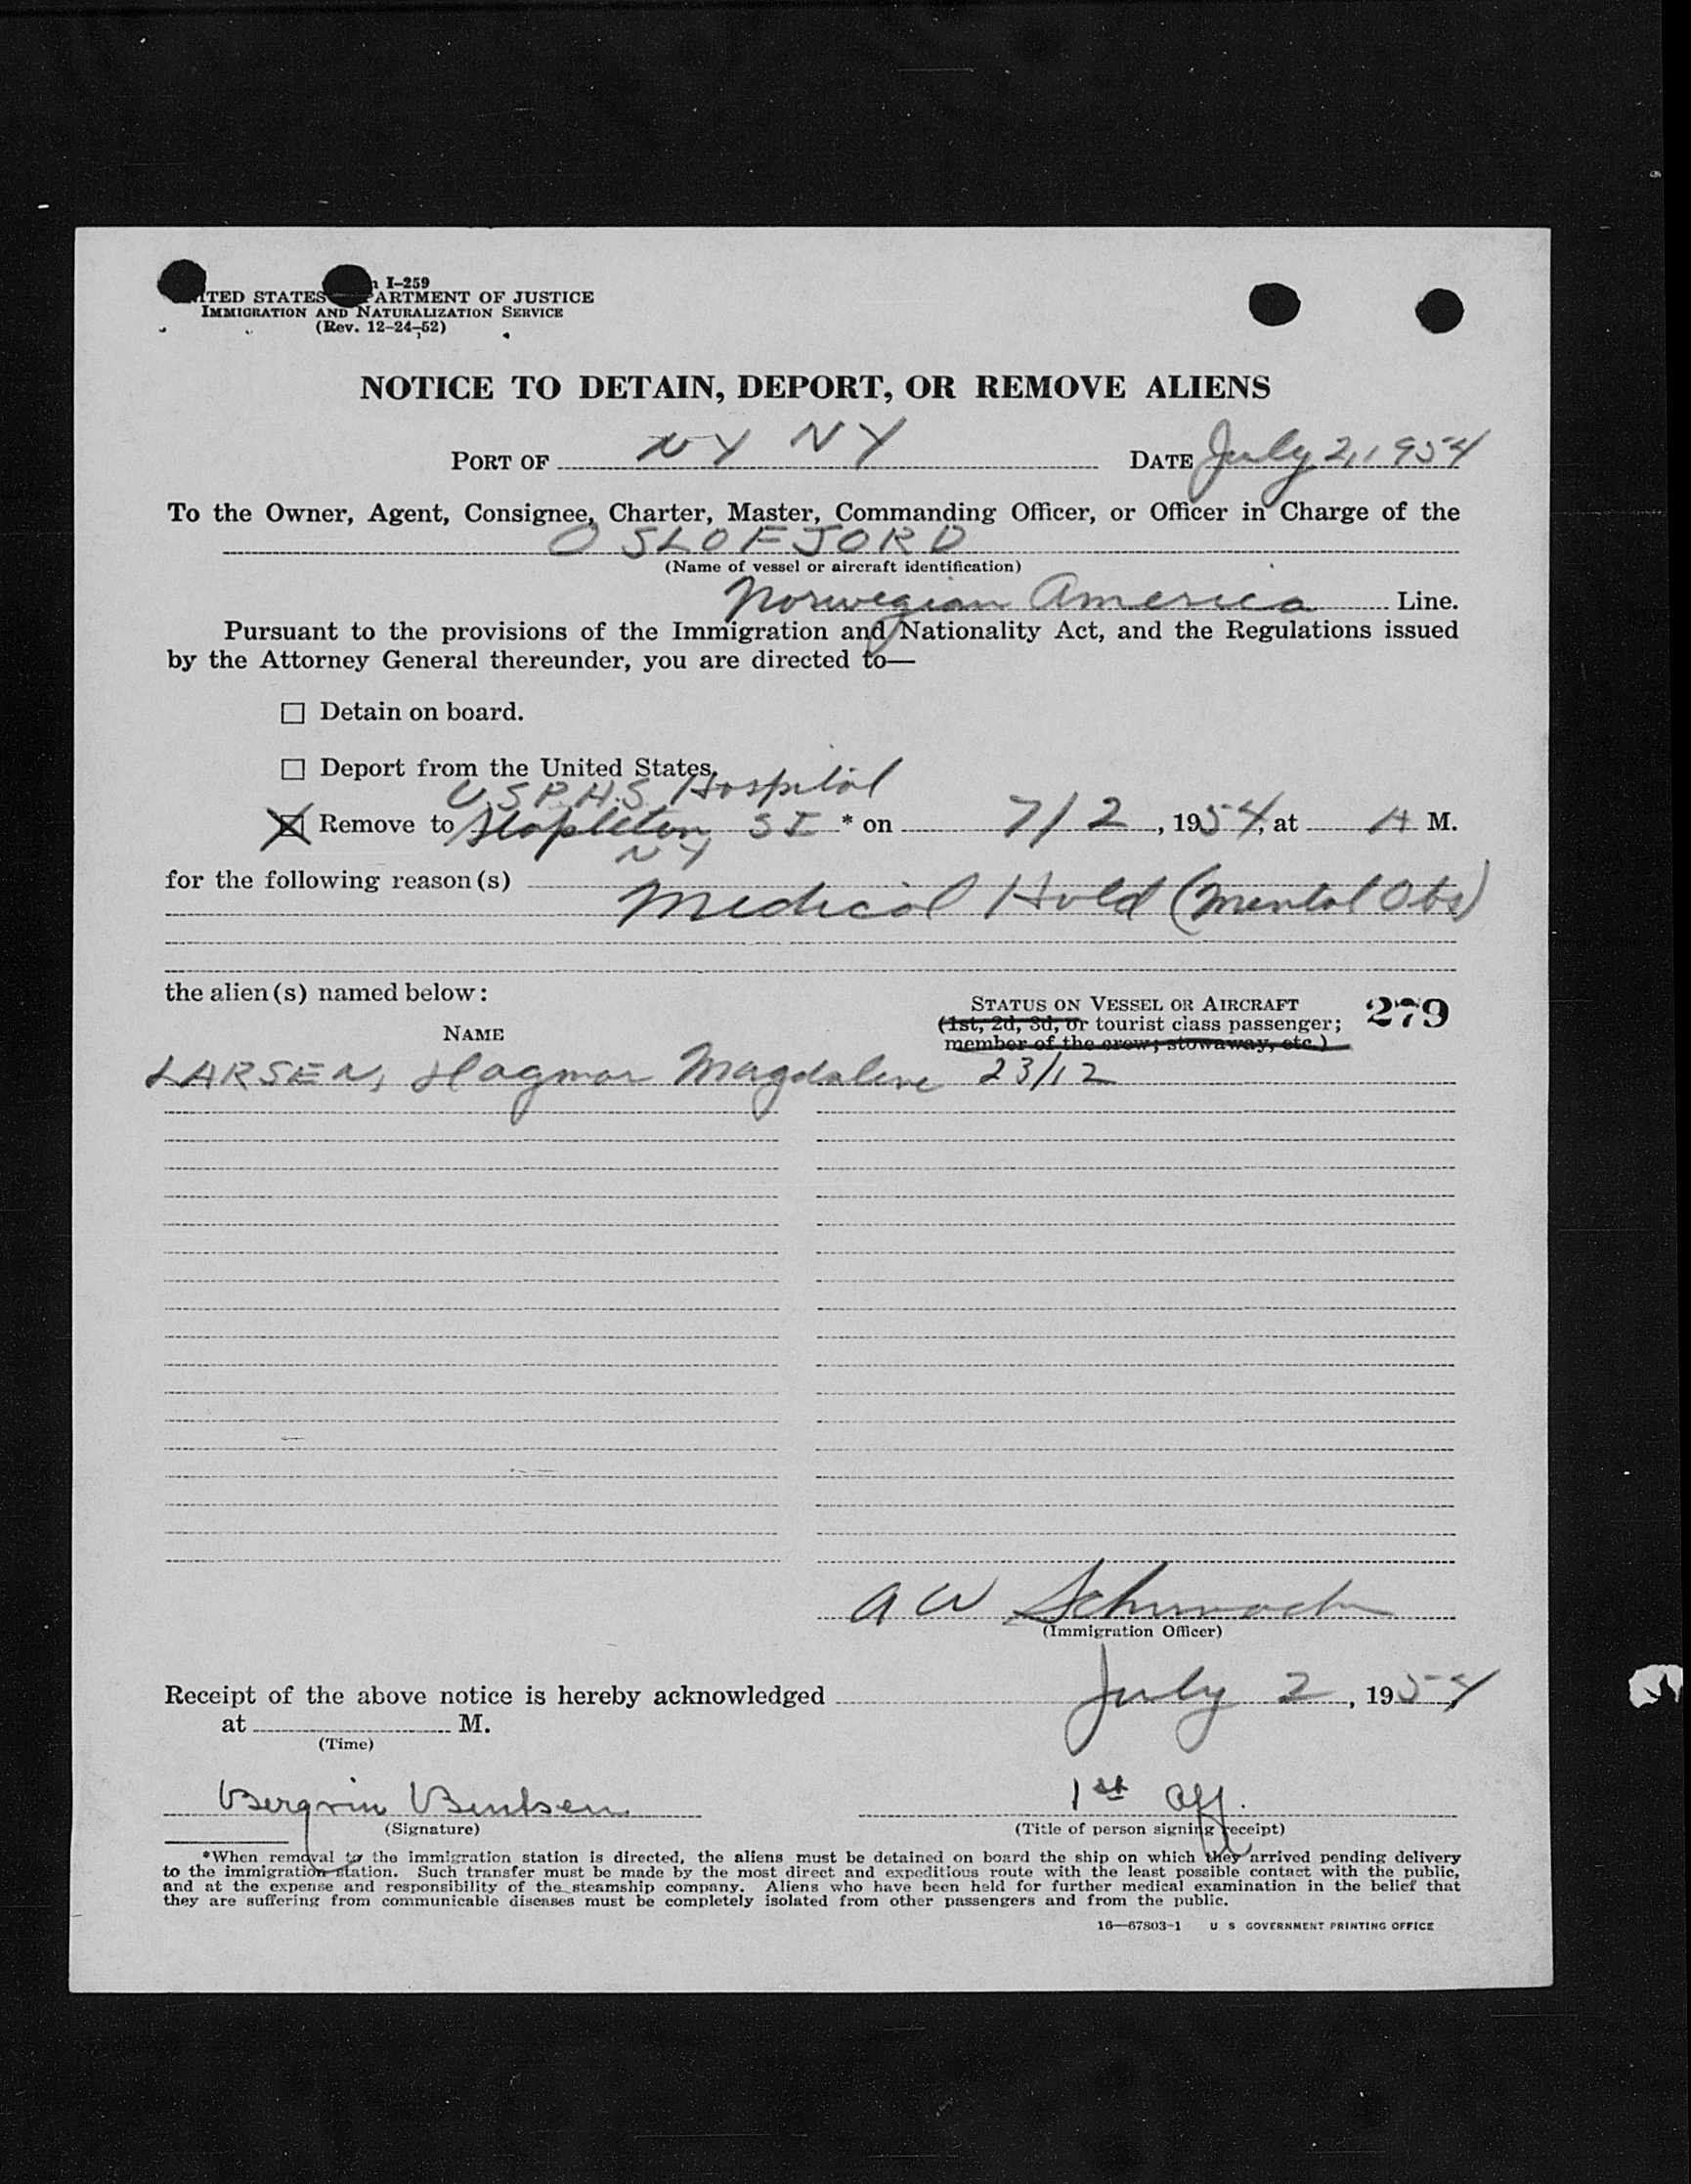 I-259
UNITED STATES DEPARTMENT OF JUSTICE
IMMIGRATION AND NATURALIZATION SERVICE
(Rev. 12-24-52)
NOTICE TO DETAIN, DEPORT, OR REMOVE ALIENS
PORT OF NY NY DATE July 2, 1954
To the Owner, Agent, Consignee, Charter, Master, Commanding Officer, or Officer in Charge of the
OSLOFJORD
(Name of vessel or aircraft identification)
Norwegian America Line.
Pursuant to the provisions of the Immigration and Nationality Act, and the Regulations issued
by the Attorney General thereunder, you are directed to—
☐ Detain on board.
☐ Deport from the United States.
U.S.P.H.S. Hospital
☒ Remove to Stapleton SI * on 7/2, 1954, at A M.
NY
for the following reason(s)
Medical Hold (Mental Obs)
the alien(s) named below:
STATUS ON VESSEL OR AIRCRAFT 279
NAME (1st, 2d, 3d, or tourist class passenger;
member of the crew; stowaway, etc.)
LARSEN, Dagmar Magdalene 23/12
A W
(Immigration Officer)
Receipt of the above notice is hereby acknowledged July 2, 1954
at M.
(Time)
Bentsen 1st Off.
(Signature) (Title of person signing receipt)
*When removal to the immigration station is directed, the aliens must be detained on board the ship on which they arrived pending delivery
to the immigration station. Such transfer must be made by the most direct and expeditious route with the least possible contact with the public,
and at the expense and responsibility of the steamship company. Aliens who have been held for further medical examination in the belief that
they are suffering from communicable diseases must be completely isolated from other passengers and from the public.
16—67803-1 U S GOVERNMENT PRINTING OFFICE